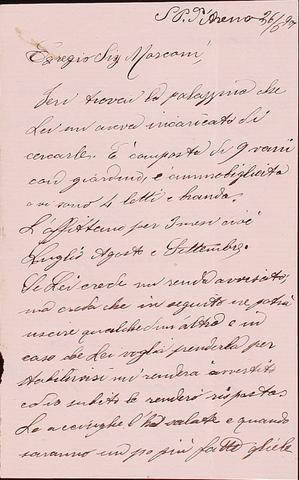 S. P. d'Arena 26/5 97
Egregio Sig Marconi,
Ieri trovai la palazzina che
Lei mi aveva incaricato di
cercarle. È composta di 9 vani
con giardino, è ammobigliata
e vi sono 4 letti e
L'affittano per 3 mesi cioè
Luglio Agosto e Settembre.
Se Lei crede mi renda avvertito,
ma creda che in seguito ve potrà
uscire qualche d'un altro e in
caso che Lei voglia prenderla per
mi renderà avvertito
ed io subito le renderò risposta.
Le acciughe salate e quando
saranno un po più fatte gliele